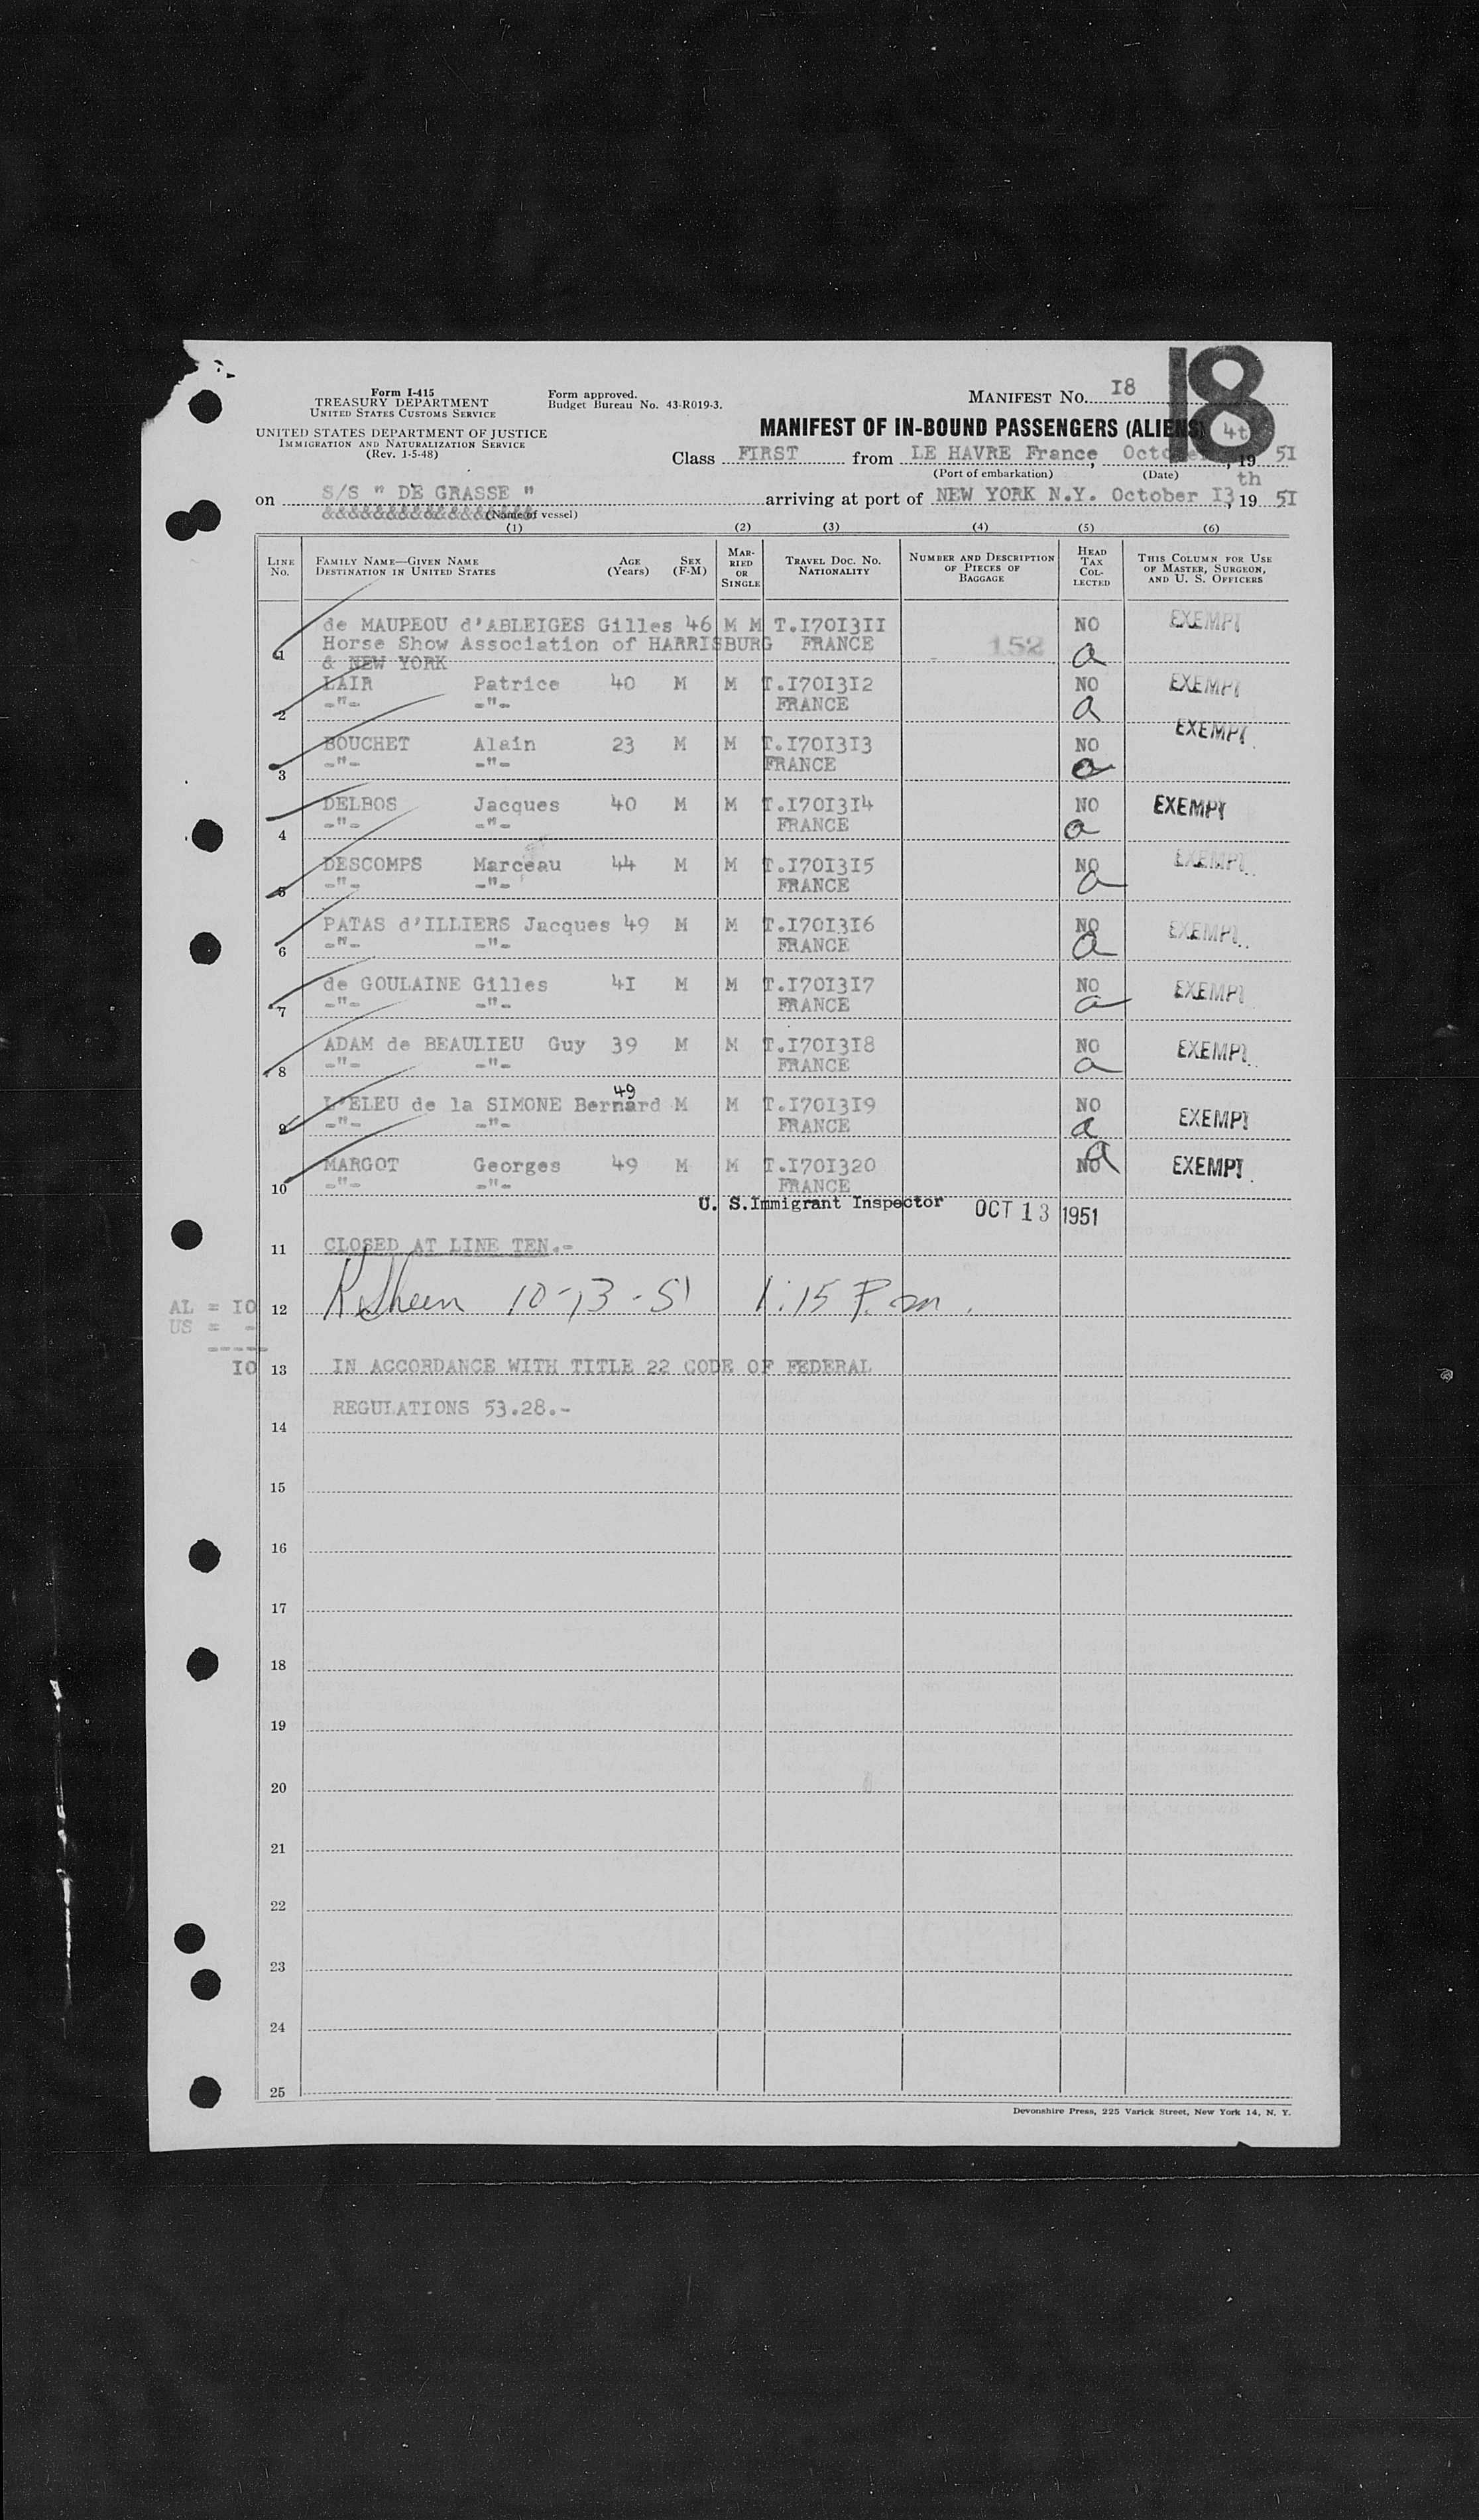 Form I-415
TREASURY DEPARTMENT
UNITED STATES CUSTOMS SERVICE
UNITED STATES DEPARTMENT OF JUSTICE
IMMIGRATION AND NATURALIZATION SERVICE
(Rev. 1-5-48)
Form approved.
Budget Bureau No. 43-R019-3.
MANIFEST No. I8
18
MANIFEST OF IN-BOUND PASSENGERS (ALIENS)
Class FIRST from LE HAVRE France, October 4th, 19 5I
(Port of embarkation) (Date)
on S/S " DE GRASSE " arriving at port of NEW YORK N.Y. October I3th, 19 5I
(Name of vessel)
(1) (2) (3) (4) (5) (6)
LINE No. FAMILY NAME—GIVEN NAME DESTINATION IN UNITED STATES AGE (Years) SEX (F-M) MARRIED OR SINGLE TRAVEL DOC. NO. NATIONALITY NUMBER AND DESCRIPTION OF PIECES OF BAGGAGE HEAD TAX COLLECTED THIS COLUMN FOR USE OF MASTER, SURGEON, AND U. S. OFFICERS
de MAUPEOU d'ABLEIGES Gilles 46 M M T.I70I3II NO EXEMPT
1 Horse Show Association of HARRISBURG FRANCE 152 a
& NEW YORK
LAIR Patrice 40 M M T.I70I3I2 NO EXEMPT
2 -"- -"- FRANCE a
BOUCHET Alain 23 M M T.I70I3I3 NO EXEMPT
3 -"- -"- FRANCE a
DELBOS Jacques 40 M M T.I70I3I4 NO EXEMPT
4 -"- -"- FRANCE a
DESCOMPS Marceau 44 M M T.I70I3I5 NO EXEMPT
5 -"- -"- FRANCE a
PATAS d'ILLIERS Jacques 49 M M T.I70I3I6 NO EXEMPT
6 -"- -"- FRANCE a
de GOULAINE Gilles 4I M M T.I70I3I7 NO EXEMPT
7 -"- -"- FRANCE a
ADAM de BEAULIEU Guy 39 M M T.I70I3I8 NO EXEMPT
8 -"- -"- FRANCE a
L'ELEU de la SIMONE Bernard 49 M M T.I70I3I9 NO EXEMPT
9 -"- -"- FRANCE a
MARGOT Georges 49 M M T.I70I320 NO a EXEMPT
10 -"- -"- FRANCE
U. S. Immigrant Inspector OCT 13 1951
11 CLOSED AT LINE TEN.-
AL = I0
12 10-13-51 1:15 P.m.
US = -
-----
I0
13 IN ACCORDANCE WITH TITLE 22 CODE OF FEDERAL
REGULATIONS 53.28.-
14
15
16
17
18
19
20
21
22
23
24
25
Devonshire Press, 225 Varick Street, New York 14, N. Y.